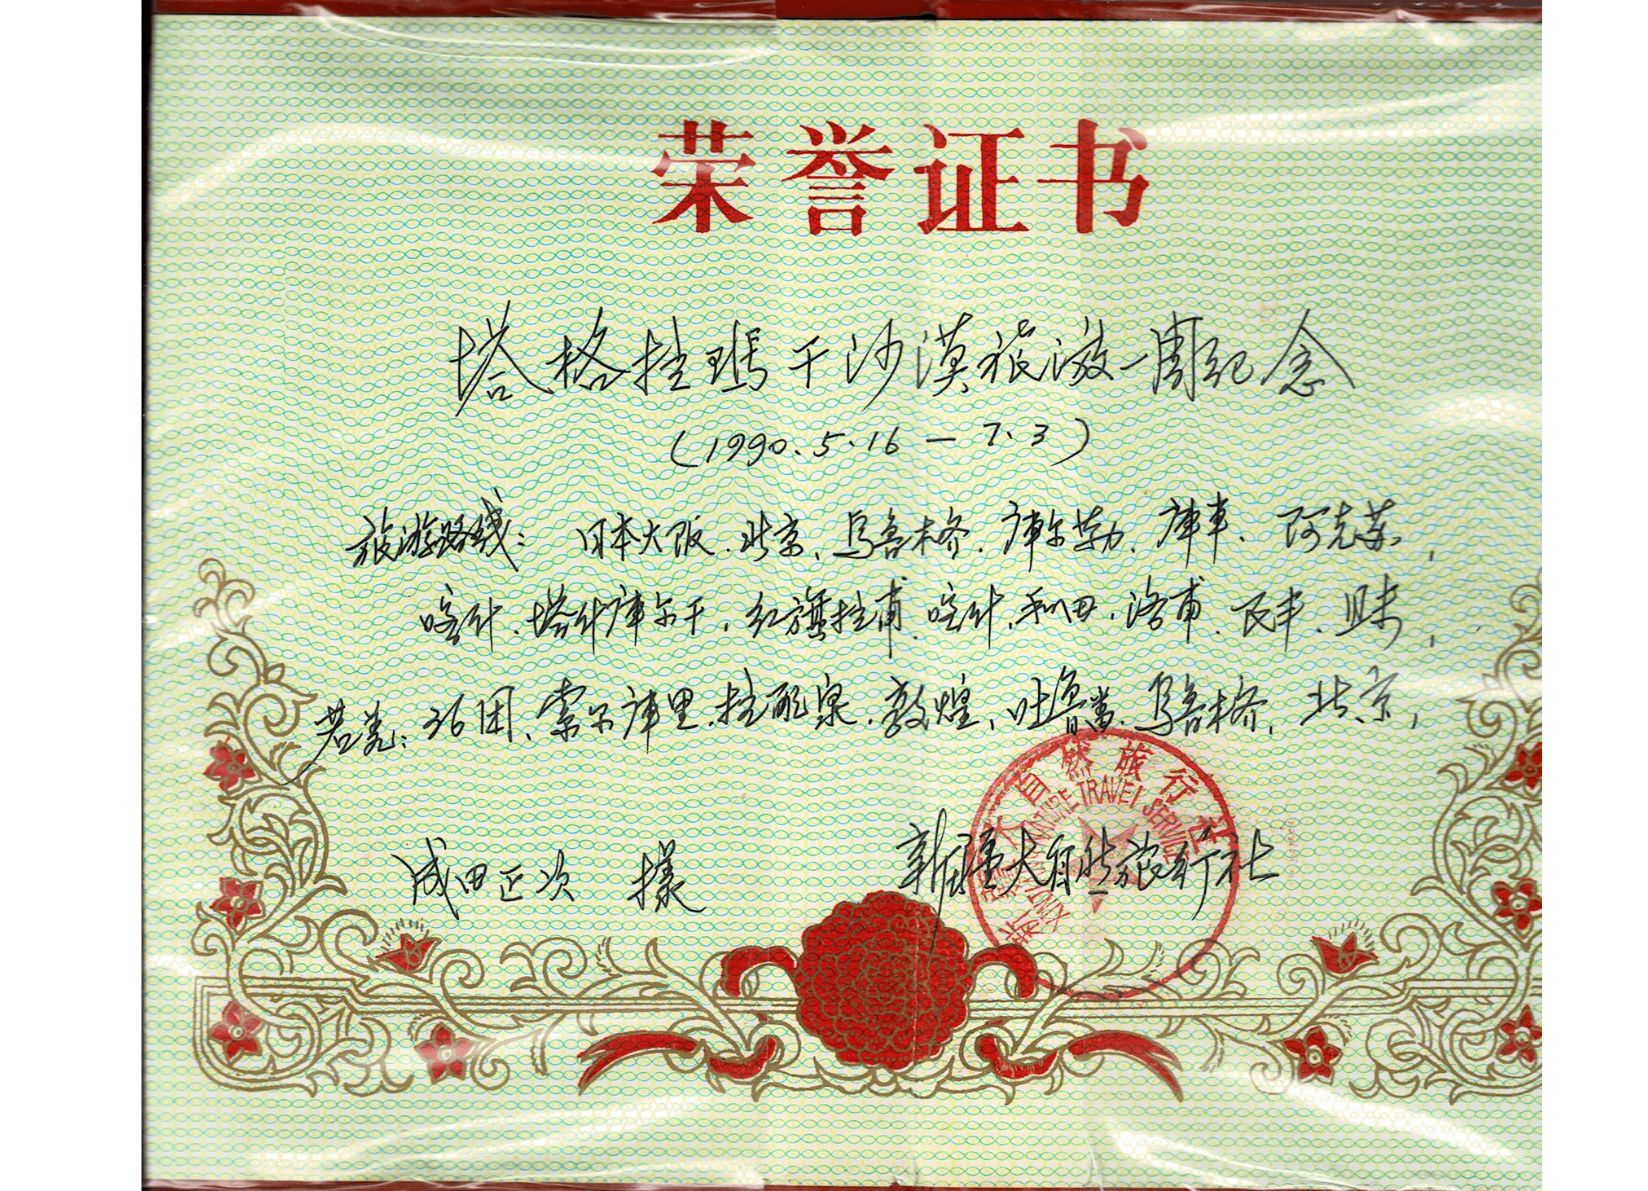 荣誉证书
塔格拉玛干沙漠旅游一周纪念
(1990.5.16—7.3)
旅游路线：日本大阪、北京、乌鲁木齐、库尔勒、库车、阿克苏，
喀什、塔什库尔干，红旗拉甫、喀什、和田、洛甫、民丰、且末，
若羌：36团、索尔库里、拉配泉、敦煌、吐鲁番、乌鲁木齐、北京，
成田正次 様
新疆大自然旅行社
新疆大自然旅行社
XINJIANG NATURE TRAVEL SERVICE